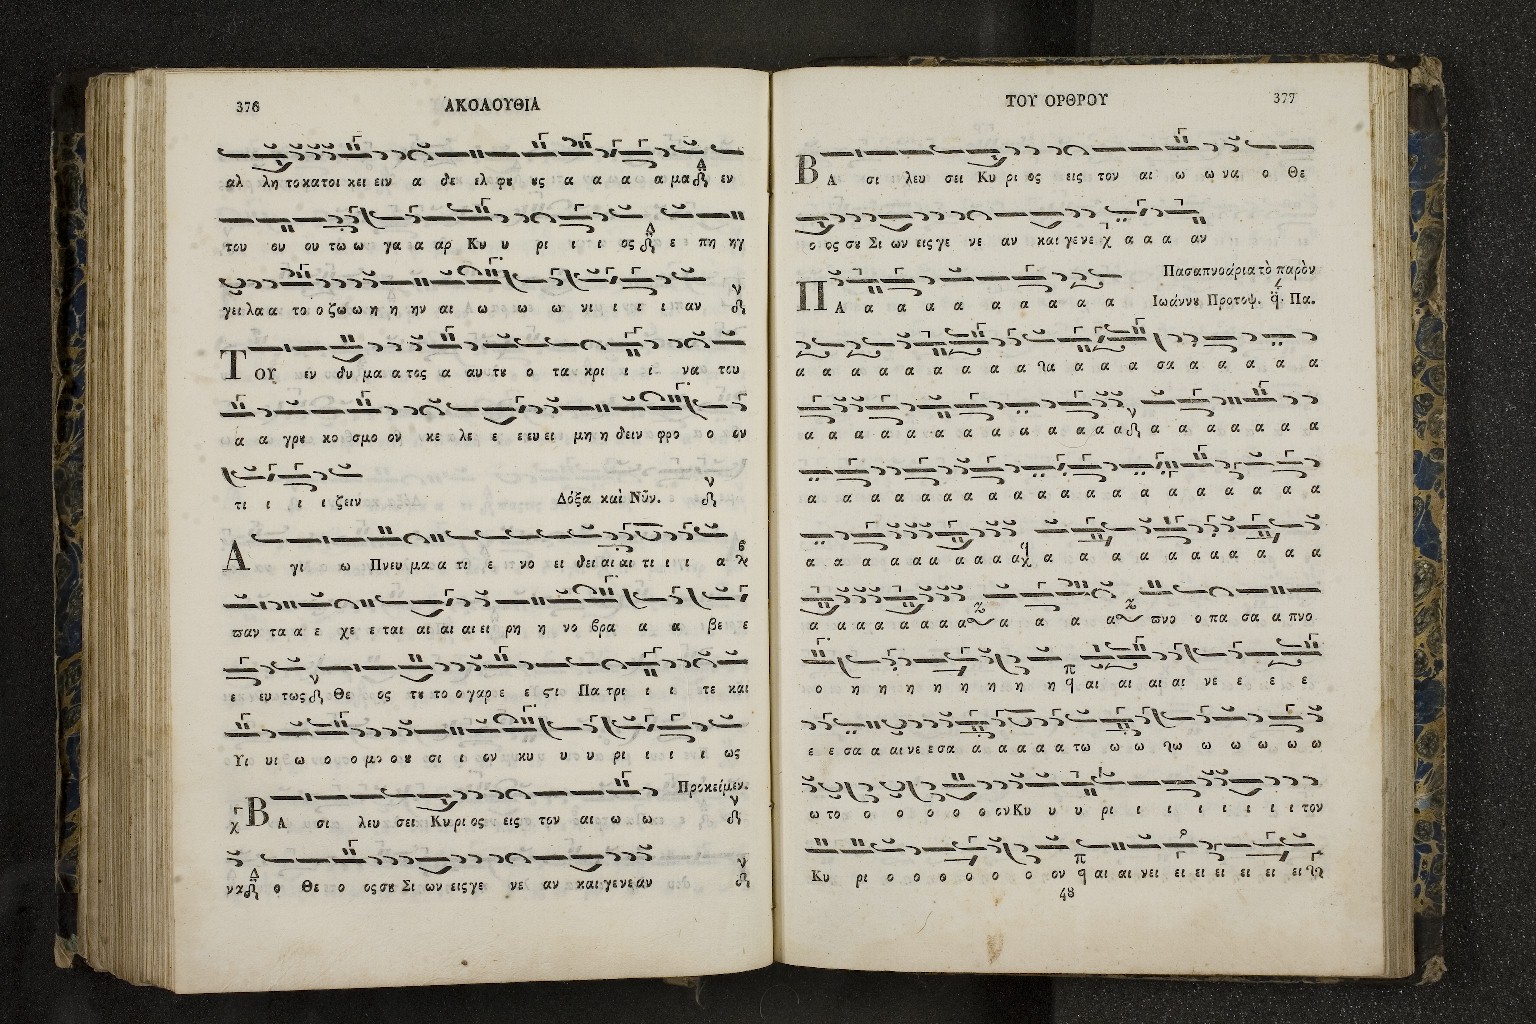 376
ΑΚΟΛΟΥΘΙΑ
αλ λη τοκατοι κει ειν α δε ελ φȣ ȣς α α α α μα εν
του ου ου τω ω γα α αρ Κυ υ ρι ι ι ος ε πη ηγ
γει λα α το ο ζω ω η η ην αι ω ω ω νι ι ι ι αν
ΤΟΥ εν δυ μα α τος α αυ τȣ ο τα κρι ι ι να του
α α γρȣ κο σμο ον κε λε ε ε ευ ει μη η δειν φρο ο ον
τι ι ι ι ζειν Δόξα καὶ Νῦν.
Α γι ο ω Πνευ μα α τι ε νο ει δει αι αι τι ι ι α
ϖαν τα α ε χε ε ται αι αι αι ει ρη η νο βρα α α βε ε
ε ευ τως Θε ος τȣ το ο γαρ ε ε ςι Πα τρι ι ι τε και
Υι υι ω ο ο μο ο ȣ σι ι ον κυ υ υ ρι ι ι ι ως
Προκείμεν.
ΒΑ σι λευ σει Κυ ρι ος εις τον αι ω ω
να ο Θε ο ος σȣ Σι ων εις γε νε αν και γε νε αν
ΤΟΥ ΟΡΘΡΟΥ
377
ΒΑ σι λευ σει Κυ ρι ος εις τον αι ω ω να ο Θε
ο ος σȣ Σι ων εις γε νε αν και γε νε α α α αν
Πασαπνοάρια τὸ παρὸν
ΠΑ α α α α α α α α α Ἰωάννȣ Προτοψ. Πα.
α α α α α α α α α α α α α σα α α α α α
α α α α α α α α α α α α α α α α α α α α
α α α α α α α α α α α α α α α α α α α α
α α α α α α α α α α α α α α α α α α α α
α α α α α α α α α α α α ϖνο ο πα σα α πνο
ο η η η η η η η η αι αι αι αι νε ε ε ε
ε ε σα α αι νε ε σα α α α α α τω ω ω ω ω ω ω ω ω
ω το ο ο ο ο ο ον Κυ υ υ υ ρι ι ι ι ι ι ι ι τον
Κυ ρι ο ο ο ο ο ο ον αι αι νει ει ει ει ει ει ει
48